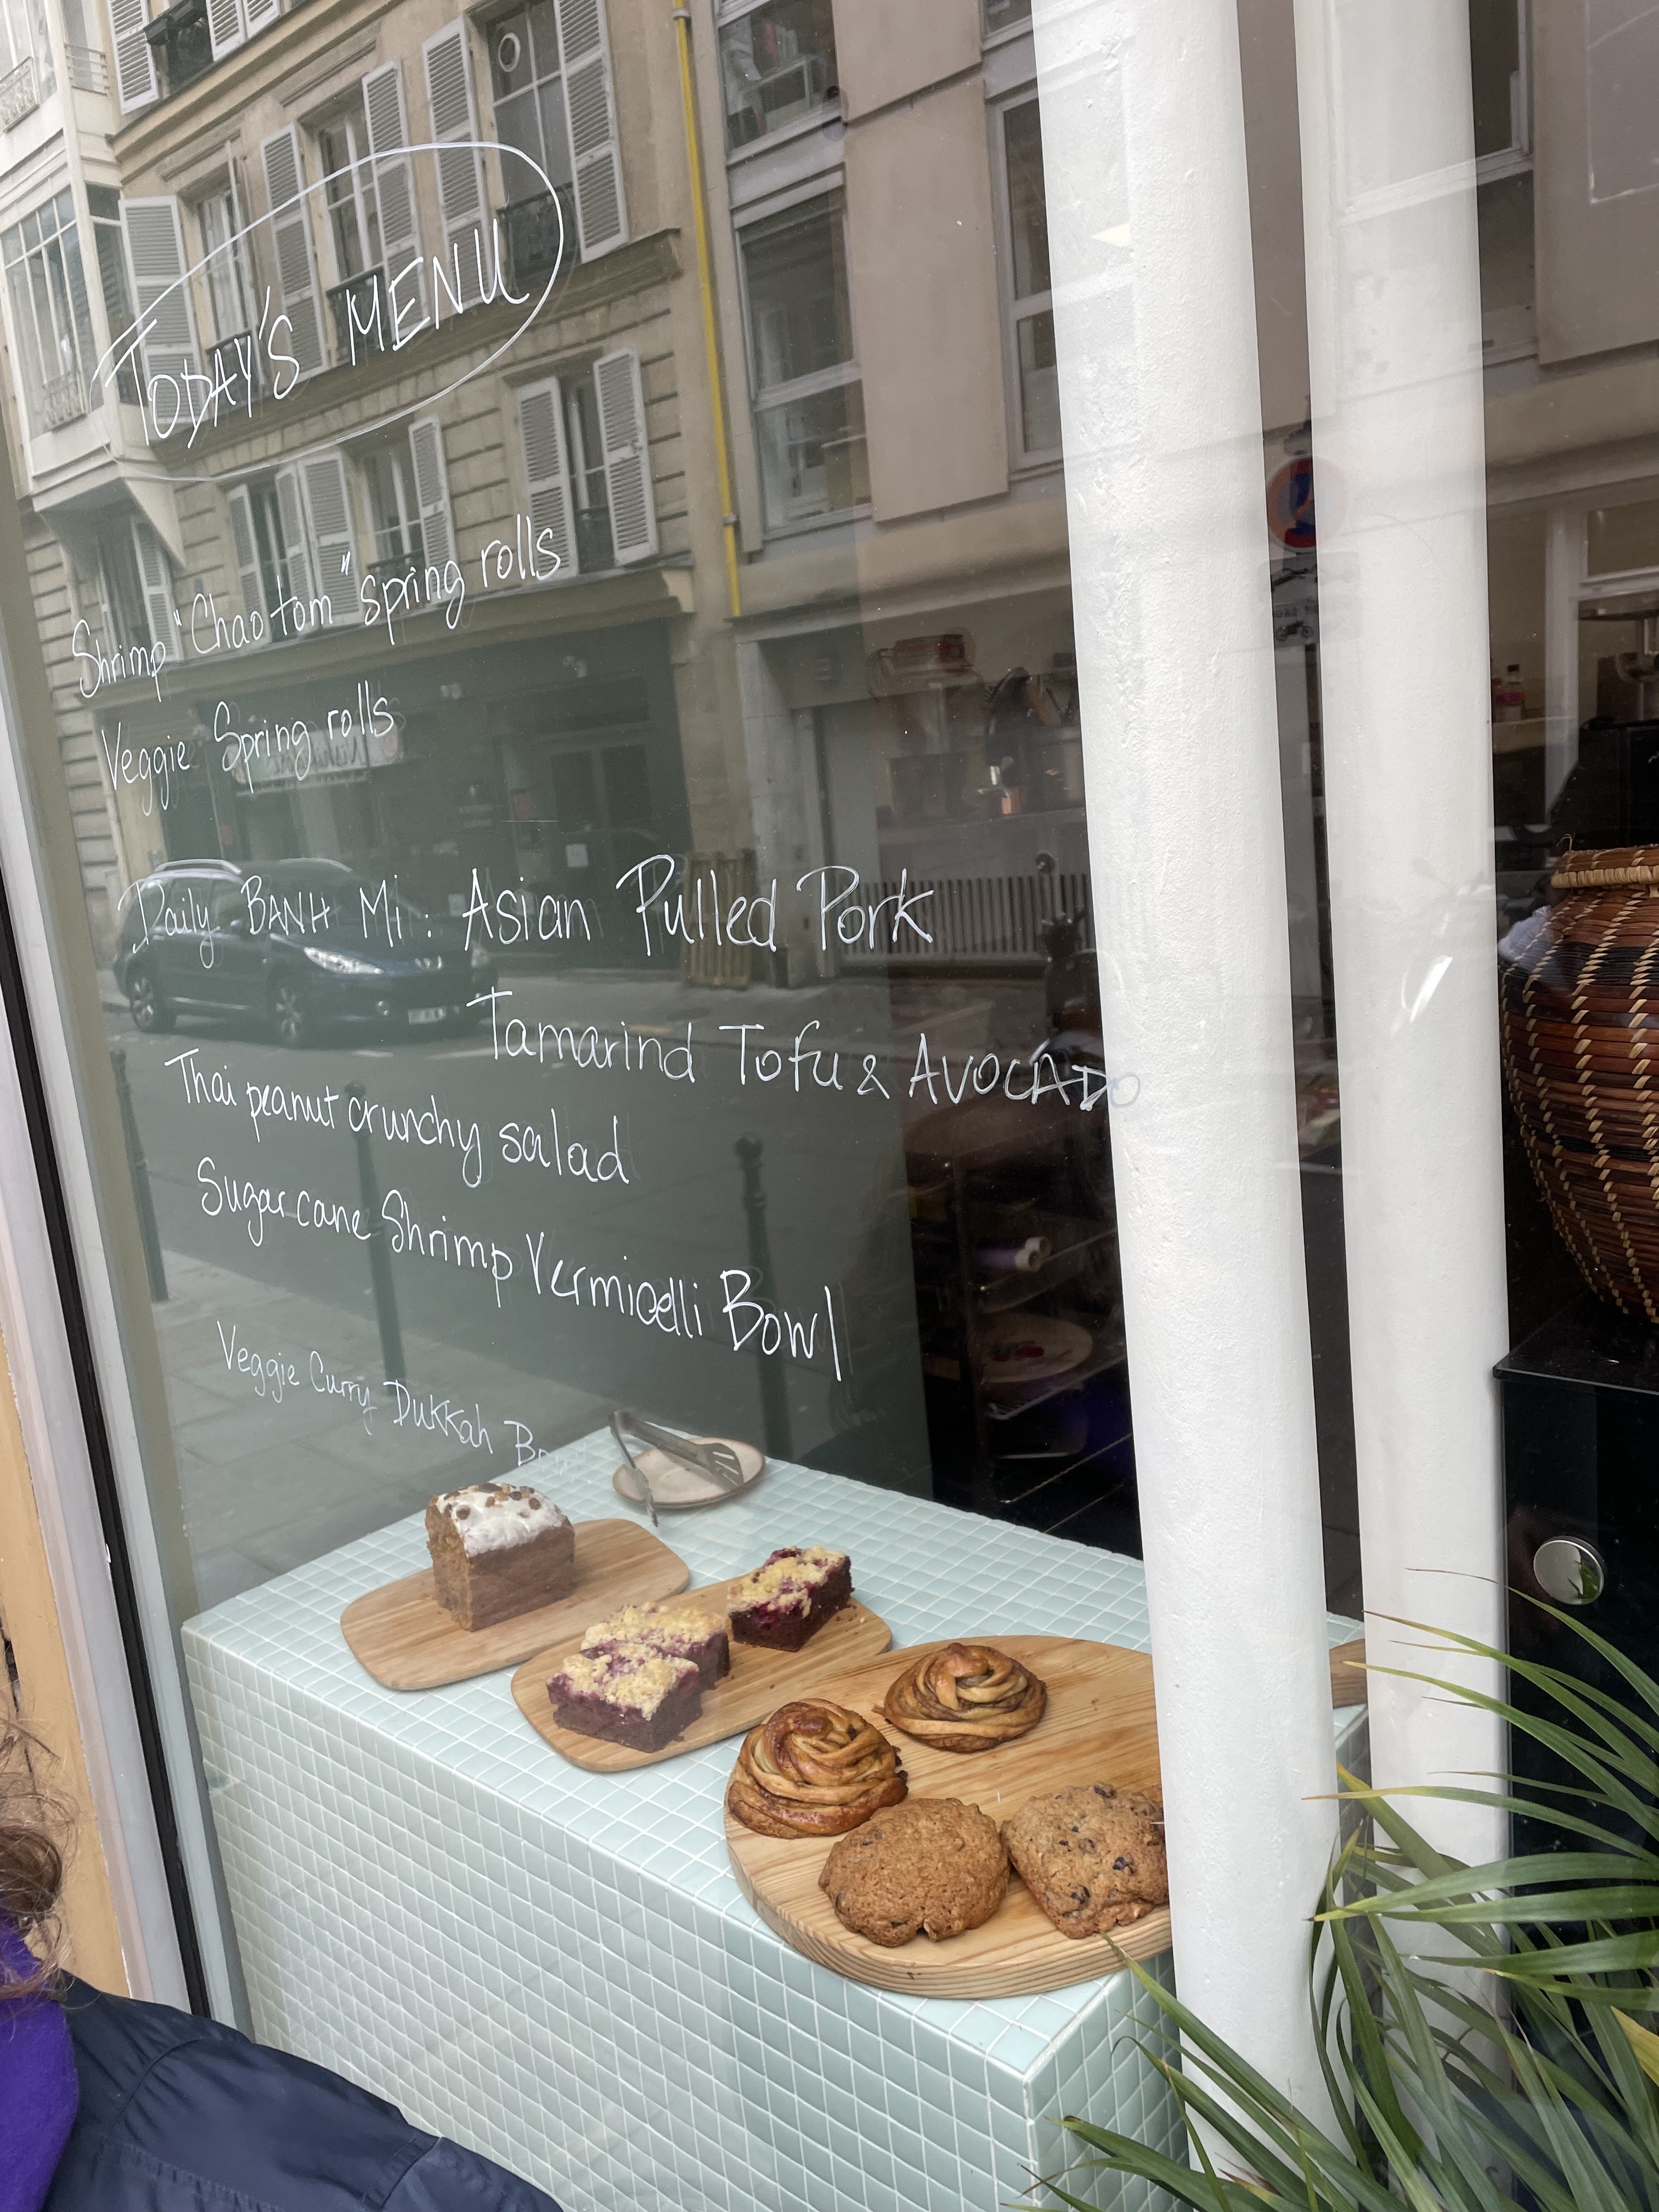 TODAY'S MENU
Shrimp "Chao tom" spring rolls
Veggie Spring rolls
Daily BANH Mi: Asian Pulled Pork
Tamarind Tofu & AVOCADO
Thai peanut crunchy salad
Sugar cane Shrimp Vermicelli Bowl
Veggie Curry Dukkah